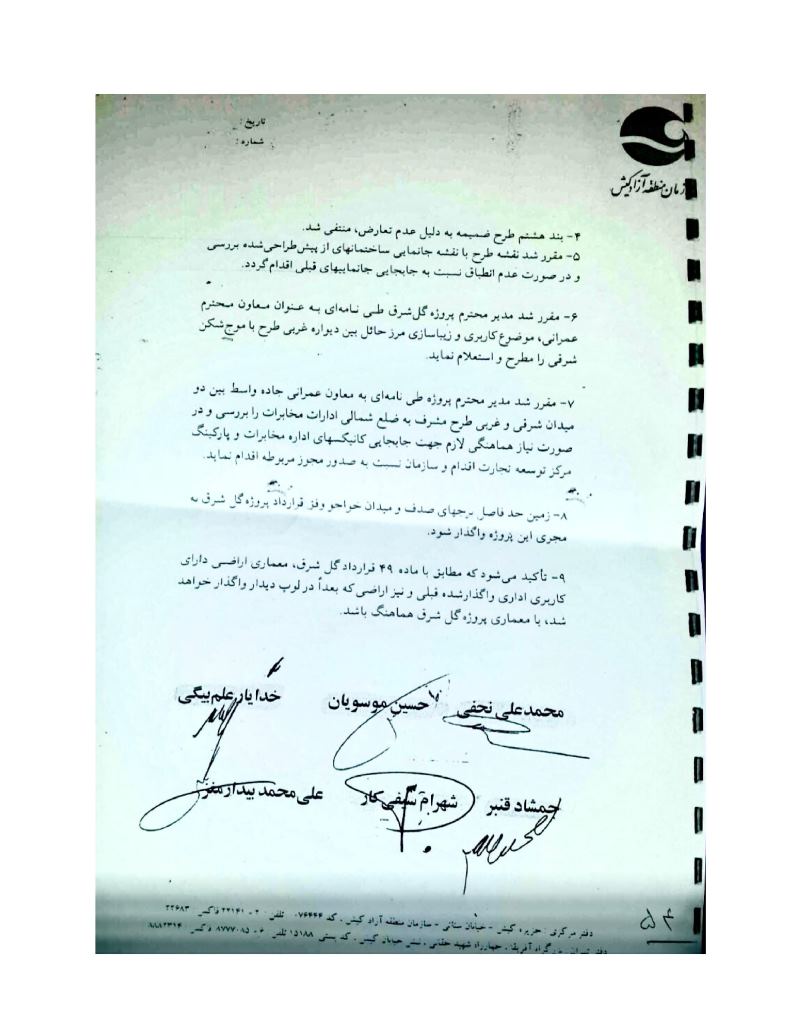 تاریخ :
شماره :
سازمان منطقه آزاد کیش
۴- بند هشتم طرح ضمیمه به دلیل عدم تعارض، منتفی شد.
۵- مقرر شد نقشه طرح با نقشه جانمایی ساختمانهای از پیش‌طراحی‌شده بررسی
و در صورت عدم انطباق نسبت به جابجایی جانماییهای قبلی اقدام گردد.
۶- مقرر شد مدیر محترم پروژه گل‌شرق طی نامه‌ای به عنوان معاون محترم
عمرانی، موضوع کاربری و زیباسازی مرز حائل بین دیواره غربی طرح با موج‌شکن
شرقی را مطرح و استعلام نماید.
۷- مقرر شد مدیر محترم پروژه طی نامه‌ای به معاون عمرانی جاده واسط بین دو
میدان شرقی و غربی طرح مشرف به ضلع شمالی ادارات مخابرات را بررسی و در
صورت نیاز هماهنگی لازم جهت جابجایی کانیکسهای اداره مخابرات و پارکینگ
مرکز توسعه تجارت اقدام و سازمان نسبت به صدور مجوز مربوطه اقدام نماید.
۸- زمین حد فاصل برجهای صدف و میدان خواجو وفق قرارداد پروژه گل شرق به
مجری این پروژه واگذار شود.
۹- تأکید می‌شود که مطابق با ماده ۴۹ قرارداد گل شرق، معماری اراضی دارای
کاربری اداری واگذارشده قبلی و نیز اراضی که بعداً در لوپ دیدار واگذار خواهد
شد، با معماری پروژه گل شرق هماهنگ باشد.
محمدعلی نجفی حسین موسویان خدایار علم‌بیگی
جمشاد قنبر شهرام سیفی‌کار علی محمد بیدارمغز
دفتر مرکزی : جزیره کیش - خیابان سنائی - سازمان منطقه آزاد کیش . کد ۰۷۶۴۴۴ تلفن : ۲ - ۲۲۱۴۱ فاکس ۲۲۶۸۳
دفتر تهران : بزرگراه آفریقا . چهارراه شهید حقانی . نبش خیابان کیش . کد پستی ۱۵۱۸۸ تلفن ۶ - ۸۷۷۷۰۸۵ فاکس :
۵۴